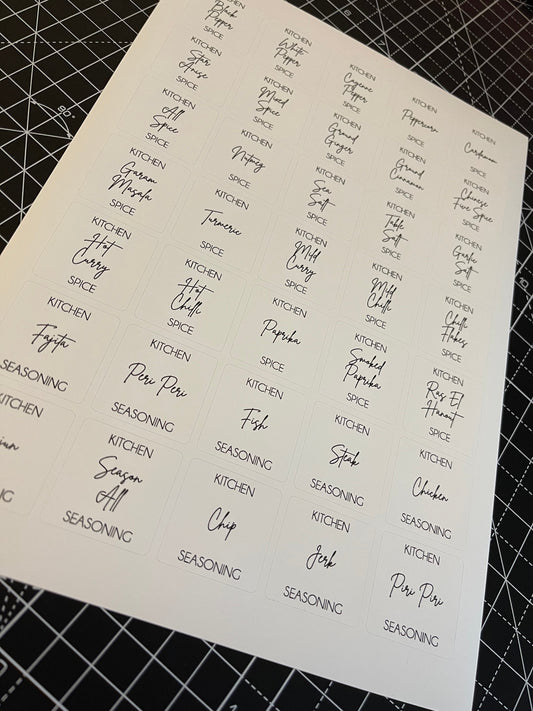 KITCHEN
Black
Pepper
SPICE
KITCHEN
White
Pepper
SPICE
KITCHEN
Cayenne
Pepper
SPICE
KITCHEN
Peppercorn
SPICE
KITCHEN
Cardamon
SPICE
KITCHEN
Star
Anise
SPICE
KITCHEN
Mixed
Spice
SPICE
KITCHEN
Ground
Ginger
SPICE
KITCHEN
Ground
Cinnamon
SPICE
KITCHEN
Chinese
Five Spice
SPICE
KITCHEN
All
Spice
SPICE
KITCHEN
Nutmeg
SPICE
KITCHEN
Sea
Salt
SPICE
KITCHEN
Table
Salt
SPICE
KITCHEN
Garlic
Salt
SPICE
KITCHEN
Garam
Masala
SPICE
KITCHEN
Turmeric
SPICE
KITCHEN
Mild
Curry
SPICE
KITCHEN
Mild
Chilli
SPICE
KITCHEN
Chilli
Flakes
SPICE
KITCHEN
Hot
Curry
SPICE
KITCHEN
Hot
Chilli
SPICE
KITCHEN
Paprika
SPICE
KITCHEN
Smoked
Paprika
SPICE
KITCHEN
Ras El
Hanout
SPICE
KITCHEN
Fajita
SEASONING
KITCHEN
Peri Peri
SEASONING
KITCHEN
Fish
SEASONING
KITCHEN
Steak
SEASONING
KITCHEN
Chicken
SEASONING
KITCHEN
KITCHEN
Season
All
SEASONING
KITCHEN
Chip
SEASONING
KITCHEN
Jerk
SEASONING
KITCHEN
Piri Piri
SEASONING